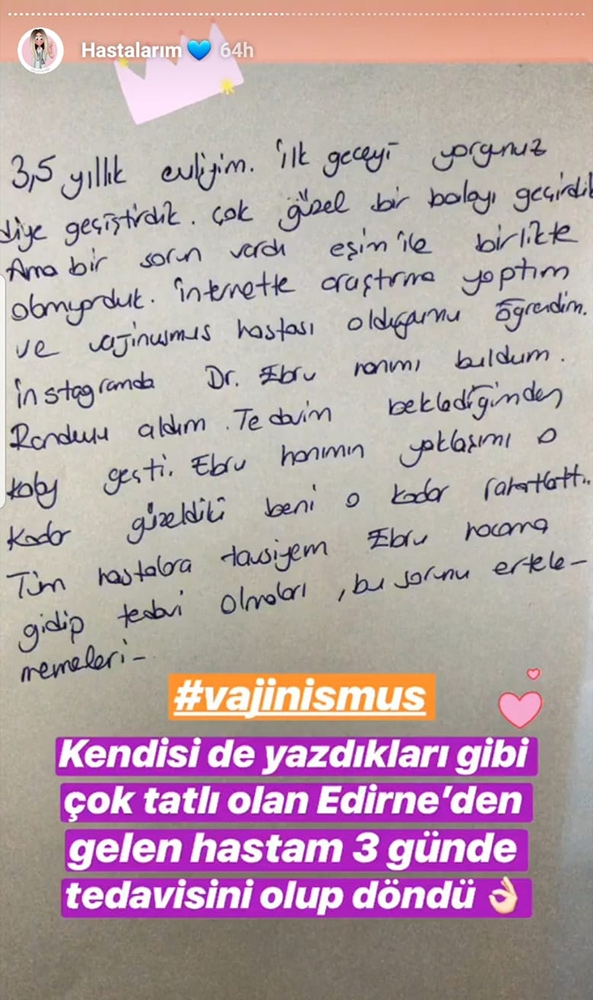 Hastalarım 64h
3,5 yıllık evliyim. İlk geceyi yorgunuz
diye geçiştirdik. çok güzel bir balayı geçirdik
Ama bir sorun vardı eşim ile birlikte
olamıyorduk. internette araştırma yaptım
ve vajinusmus hastası olduğumu öğrendim.
instagramda Dr. Ebru hanımı buldum.
Randevu aldım. Tedavim beklediğimden
kolay geçti. Ebru hanımın yaklaşımı o
kadar güzeldiki beni o kadar rahatlattı..
Tüm hastalara tavsiyem Ebru hocama
gidip tedavi olmaları, bu sorunu ertele-
memeleri-
#vajinismus
Kendisi de yazdıkları gibi
çok tatlı olan Edirne'den
gelen hastam 3 günde
tedavisini olup döndü